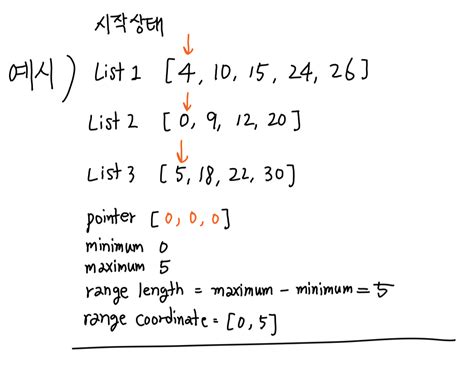 시작상태
예시) List 1 [4, 10, 15, 24, 26]
List 2 [0, 9, 12, 20]
List 3 [5, 18, 22, 30]
pointer [0, 0, 0]
minimum 0
maximum 5
range length = maximum - minimum = 5
range coordinate = [0, 5]